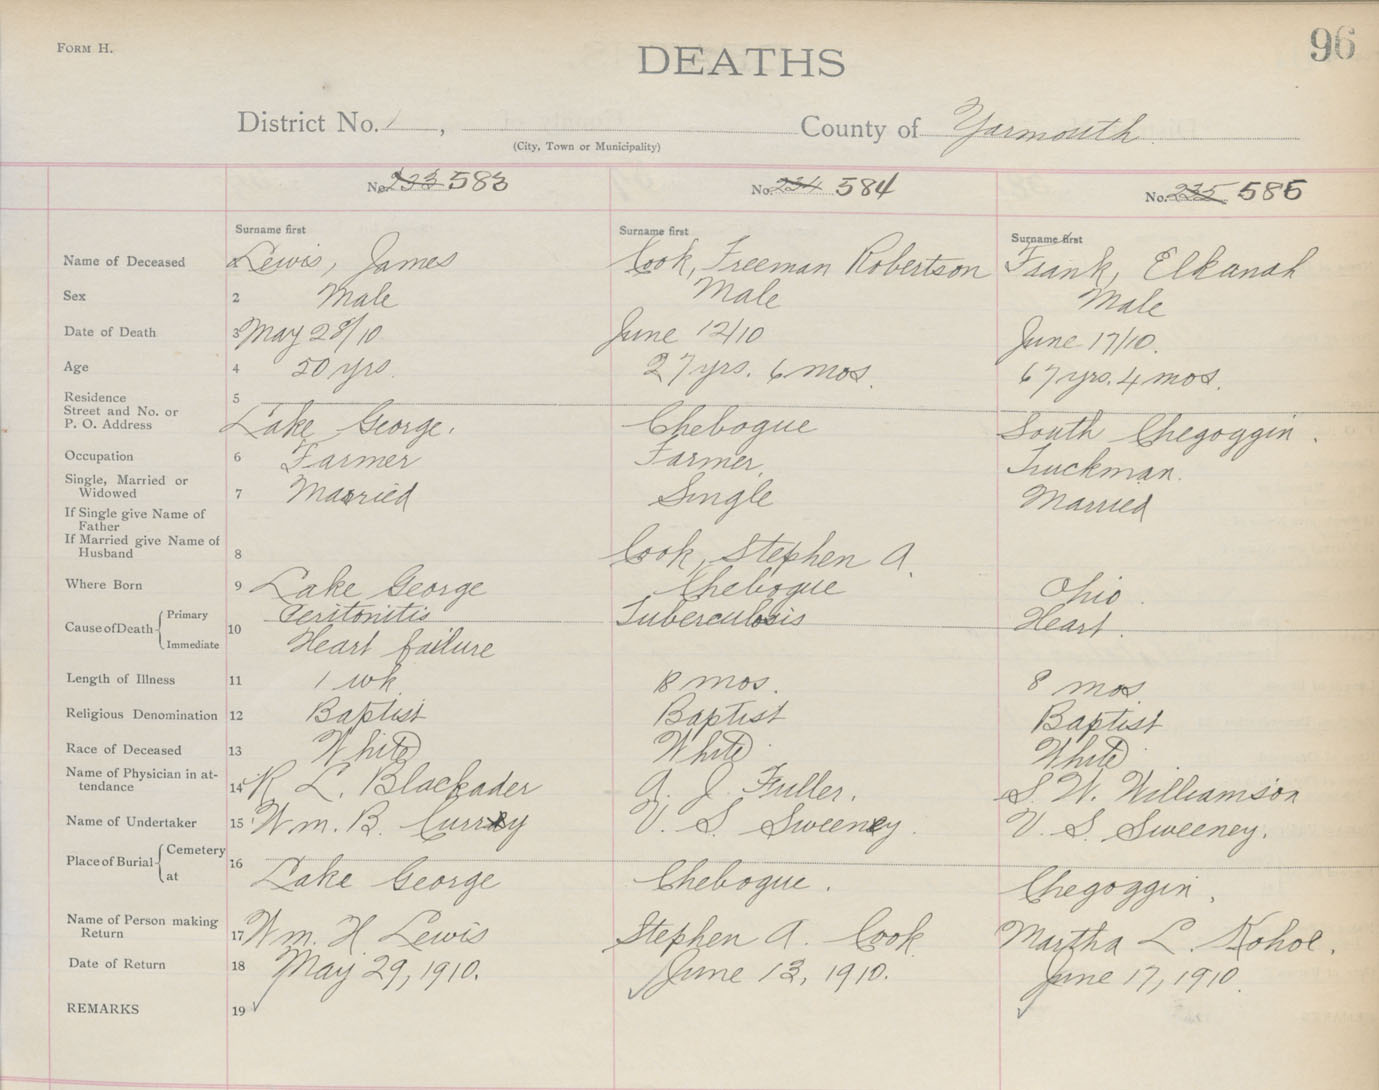 FORM H.
96
DEATHS
District No. , County of Yarmouth
(City, Town or Municipality)
No. 233 583 No. 234 584 No. 235 585
Surname first Surname first Surname first
Name of Deceased Lewis, James Cook, Freeman Robertson Frank, Elkanah
Sex 2 Male Male Male
Date of Death 3 May 28/10 June 12/10 June 17/10.
Age 4 50 yrs. 27 yrs. 6 mos. 67 yrs. 4 mos.
Residence 5
Street and No. or
P. O. Address Lake George. Chebogue South Chegoggin.
Occupation 6 Farmer Farmer. Truckman.
Single, Married or
Widowed 7 Married Single Married
If Single give Name of
Father
If Married give Name of
Husband 8 Cook, Stephen A.
Where Born 9 Lake George Chebogue Ohio
Cause of Death Primary 10 Peritonitis Tuberculosis Heart.
Immediate Heart failure
Length of Illness 11 1 wk 18 mos. 8 mos
Religious Denomination 12 Baptist Baptist Baptist
Race of Deceased 13 White White White
Name of Physician in at-
tendance 14 R. L. Blackader A. J. Fuller. S. W. Williamson
Name of Undertaker 15 Wm. B. Curry V. S. Sweeney. V. S. Sweeney.
Place of Burial Cemetery 16
at Lake George Chebogue. Chegoggin.
Name of Person making
Return 17 Wm. H. Lewis Stephen A. Cook Martha L. Kohoe.
Date of Return 18 May 29, 1910. June 13, 1910. June 17, 1910.
REMARKS 19